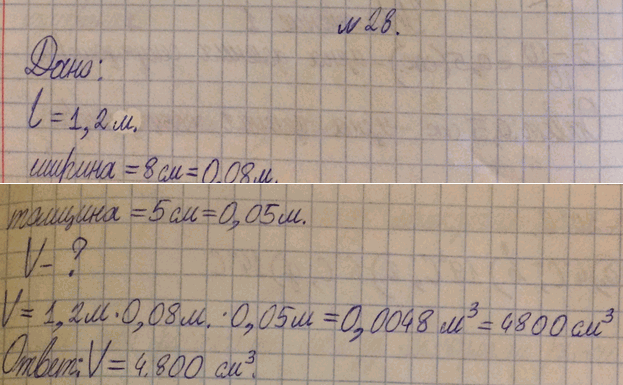 № 28.
Дано:
l = 1,2 м.
ширина = 8 см = 0,08 м.
толщина = 5 см = 0,05 м.
V - ?
V = 1,2 м · 0,08 м. · 0,05 м = 0,0048 м³ = 4800 см³
Ответ: V = 4.800 см³.